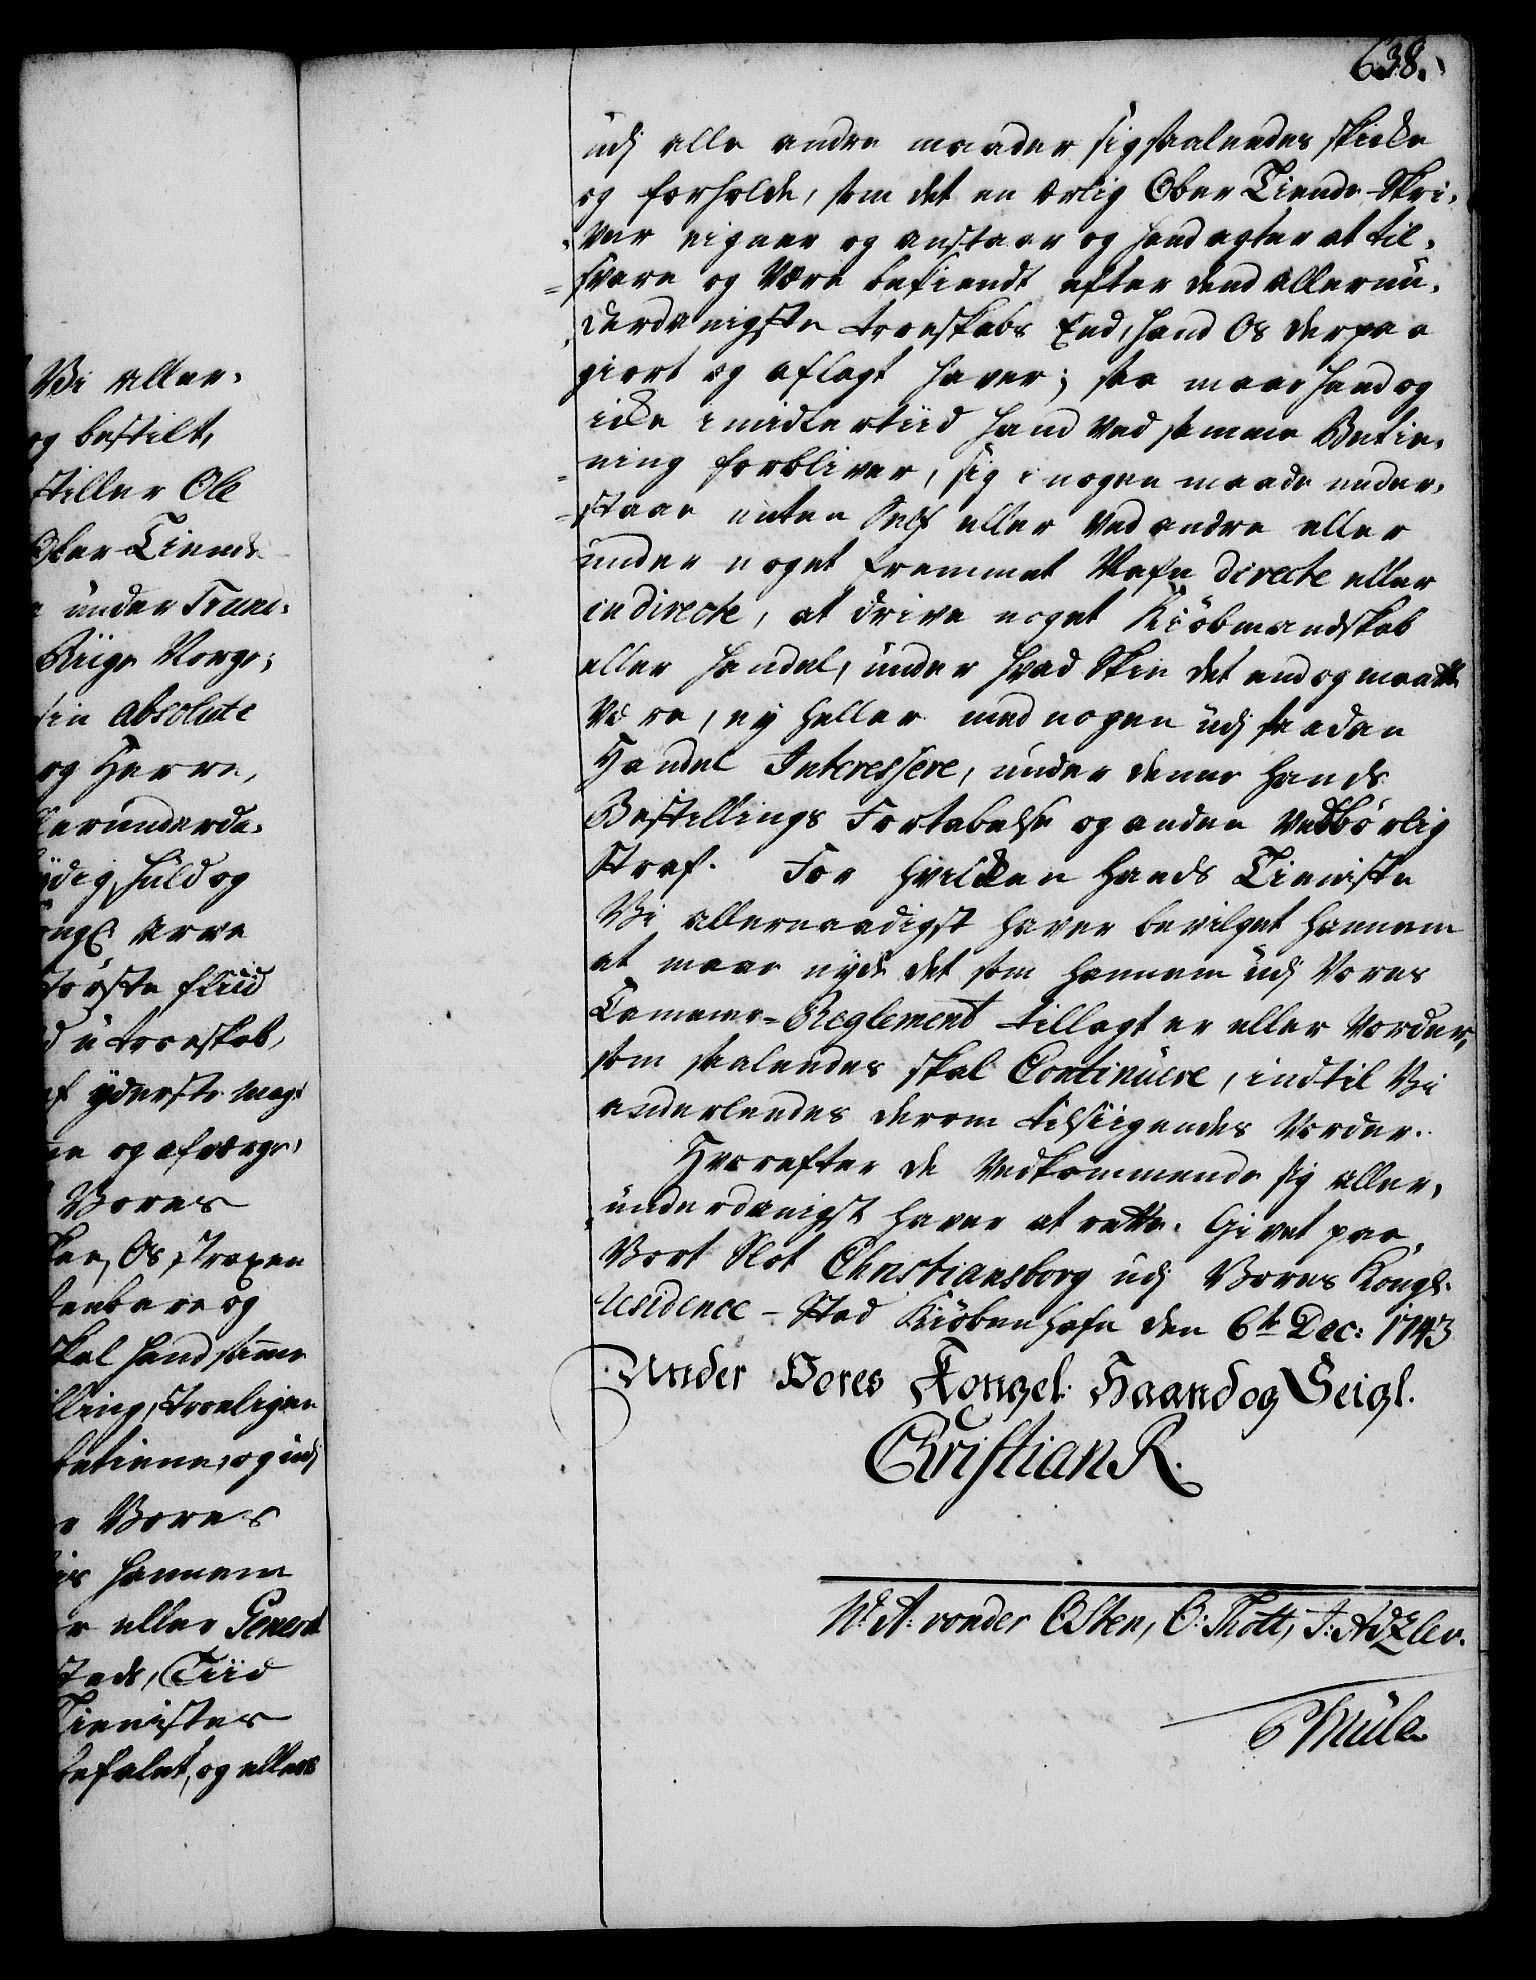 638.
Vi aller-
og bestilt,
stiller Ole
Ober-Tiende
under Trun-
Riige Norge;
absolute
og Herre,
allerunderda-
huld og
Arve
største fliid
troeskab,
af yderste magt
og afværge,
Vores
Os straxen
aabenbare og
skal hand samme
troeligen
betiene, og udj
Vores
hannem
eller General
steds, Tiid
Tienister
befalet, og ellers
udj alle andre maader sig saaledes skicke
og forholde, som det en ærlig Ober Tiende-Skri-
ver eigner og anstaar og hand agter at til-
svare og være bekiendt efter dend allerun-
derdanigste troeskabs Eed, hand Os derpaa
giort og aflagt haver; saa maae hand og
icke imidlertiid hand ved samme Betie-
ning forbliver, sig i nogen maade under-
staae enten Self eller ved andre eller
under noget fremmet Nafn directe eller
indirecte, at drive noget Kiöbmandskab
eller handel, under hvad Skin det end og maatte
være, ey heller med nogen udj saadan
Handel Interessere, under denne hands
Bestillings Fortabelse og anden vedbörlig
Straf. For hvilcken hands Tieniste
Vi allernaadigst haver bevilget hannem
at maae nyde det som hannem udj Vores
Cammer-Reglement tillagt er eller vorder,
som saaledes skal Continuere, indtil Vi
anderledes derom tilsiigendes vorder.
Hvorefter de Vedkommende sig aller-
underdanigst haver at rette. Givet paa
Vort Slot Christiansborg udj Vores Kongl.
residence-Stad Kiöbenhafn den 6te Dec: 1743
Under Vores Kongel: Haand og Seigl.
Christian R.
W. A: von der Osten, O: Thott, J: Adzlev.
Müller